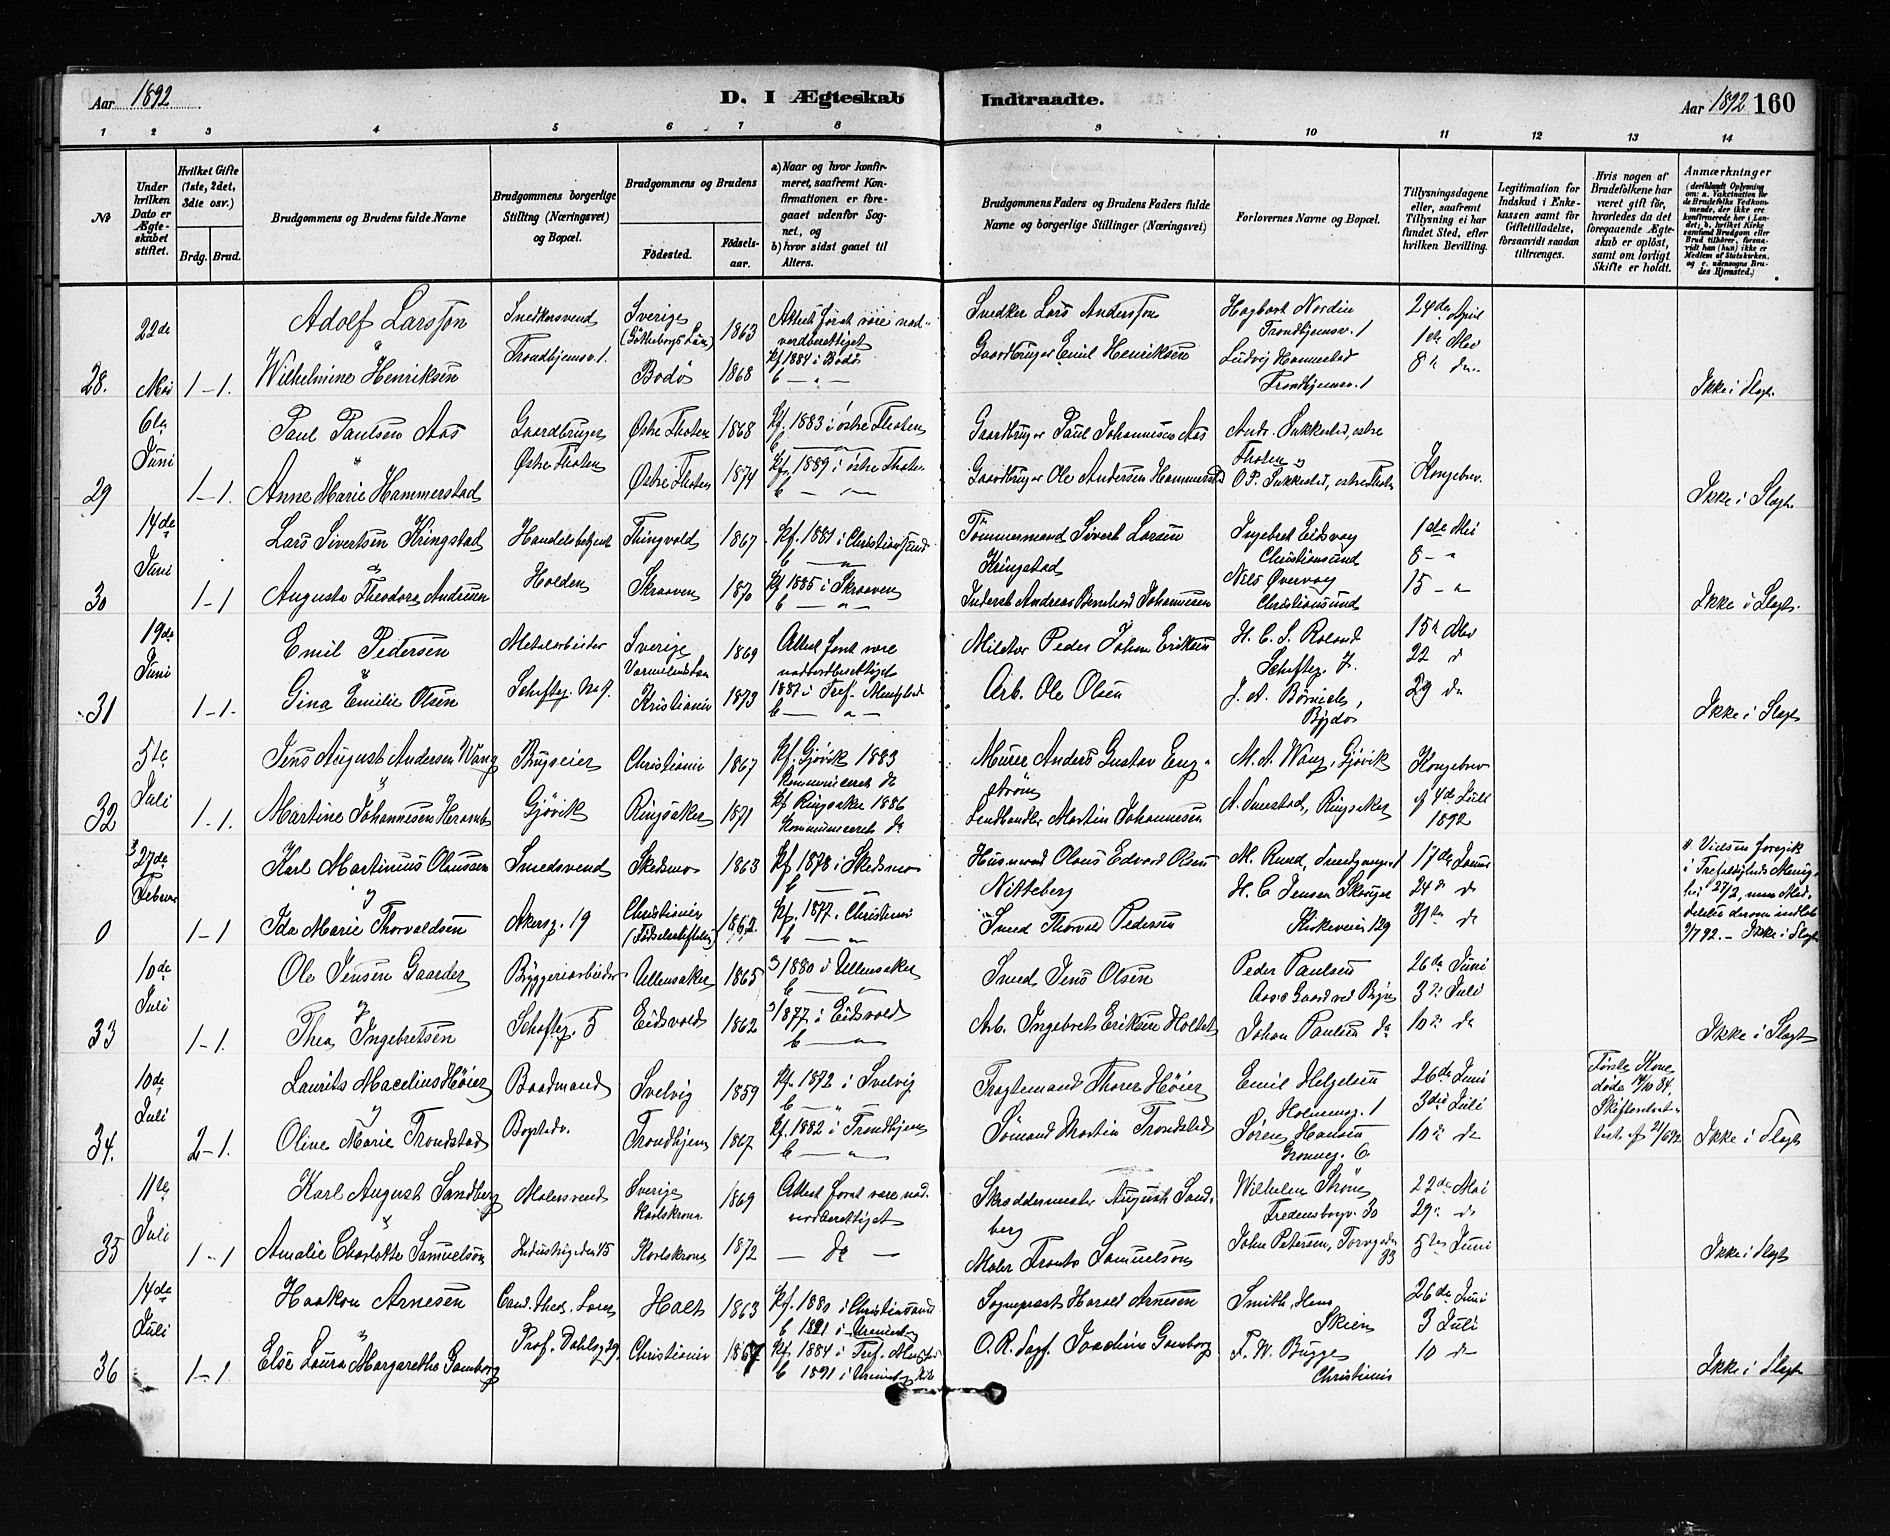 Aar 1892
D. I Ægteskab
Indtraadte.
Aar 1892 160
1 2 3 4 5 6 7 8 9 10 11 12 13 14
No
Under hvilken Dato er Ægteskabet stiftet.
Hvilket Gifte (1ste, 2det, 3die osv.)
Brdg. Brud.
Brudgommens og Brudens fulde Navne
Brudgommens borgerlige Stilling (Næringsvei) og Bopæl.
Brudgommens og Brudens
Födested.
Födselsaar.
a) Naar og hvor konfirmeret, saafremt Konfirmationen er foregaaet udenfor Sognet, og
b) hvor sidst gaaet til Alters.
Brudgommens Faders og Brudens Faders fulde Navne og borgerlige Stillinger (Næringsvei)
Forlovernes Navne og Bopæl.
Tillysningsdagene eller, saafremt Tillysning ei har fundet Sted, efter hvilken Bevilling.
Legitimation for Indskud i Enkekassen samt for Giftetilladelse, forsaavidt saadan tiltrænges.
Hvis nogen af Brudefolkene har været gift för, hvorledes da det foregaaende Ægteskab er oplöst, samt om lovligt Skifte er holdt.
Anmærkninger
(deriblandt Oplysning om: a. Vakcination for de Brudefolks Vedkommende, der ikke ere konfirmerede her i Landet; b. hvilket Kirkesamfund Brudgom eller Brud tilhører, forsaavidt han (hun) ikke er Medlem af Statskirken, og c. udensogns Brudes Hjemsted.)
28. 22de Mai 1-1.
Adolf Larsson
Wilhelmine Henriksen
Snedkersvend
Trondhjemsv. 1.
Sverige (Götheborgs Län) 1863
Bodö 1868
Attest først være nadverdberettiget
Kf 1884 i Bodö
Snedker Lars Andersson
Gaardbruger Emil Henriksen
Hagbart Nordin
Trondhjemsv. 1
Ludvig Hammerstad
Trondhjemsv. 1
24de April
1ste Mai
8de do.
Ikke i Slægt.
29 6te Juni 1-1.
Paul Paulsen Aas
Anne Marie Hammerstad
Gaardbruger
Østre Thoten
Østre Thoten 1868
Østre Thoten 1874
Kf. 1883 i østre Thoten
Kf. 1889 i østre Thoten
Gaardbruger Paul Johannesen Aas
Gaardbruger Ole Andersen Hammerstad
Andr. Sukkestad, østre Thoten
O.P. Sukkestad, østre Thoten
Kongebrev.
Ikke i Slægt.
30 14de Juni 1-1
Lars Sivertsen Kringstad
Augusta Theodora Andresen
Handelsbetjent
Holden
Thingvold 1867
Skraaven 1870
Kf. 1881 i Christiansund
Kf 1885 i Skraaven
Tömmermand Sivert Larsen Kringstad
Inderst Andreas Bernhard Johannesen
Ingebret Eidsvaag
Christiansund
Nils Øvervaag
Christiansund
1ste Mai
8 - "
15 - "
Ikke i Slægt.
31 19de Juni 1-1.
Emil Pedersen
Gina Emilie Olsen
Metalarbeider
Schøftsg. No 7.
Sverige Värmlands Län 1869
Kristiania 1873
Attest først være nadverdberettiget
1887 i Tref. Menighed
Militær Peder Johan Eriksen
Arb. Ole Olsen
H. C. S. Roland
Schøftsg. 7.
J. A. Börnick,
Bygdø
15de Mai
22 do
29 do
Ikke i Slægt
32 5te Juli 1-1.
Jens August Andersen Wang
Martine Johannesen Heramb
Brugseier
Gjøvik
Christiania 1867
Ringsaker 1871
Kf. Gjøvik 1883
Kommuniceret do
Kf Ringsaker 1886
Kommuniceret do
Murer Anders Gustav Engström
Landhandler Martin Johannesen
M. A. Wang, Gjøvik
A. Snestad, Ringsaker
Kongebrev af 4de Juli 1892
0 27de Februar 1-1
Karl Martinius Olaussen
Ida Marie Thorvaldsen
Smedsvend
Akersg. 19
Skedsmo 1863
Christiania (Fødselsstiftelsen) 1862.
Kf 1878 i Skedsmo
Kf. 1877. Christiania
Husmand Olaus Edvard Olsen Nitteberg
Smed Thorvald Pedersen
M. Rund, Smedgangen 1
H. C. Jensen Skauger
Kirkeveien 129
17de Januar
24de do
31te do
Vielsen foregik i Trefoldigheds Menighed 27/2, men Meddelelse derom indløb 9/7 92. - Ikke i Slægt
33 10de Juli 1-1.
Ole Jensen Gaarder
Thea Ingebretsen
Bryggeriarbeider
Schøftsg. 5
Ullensaker 1865
Eidsvold 1862
1880 i Ullensaker
1877 i Eidsvold
Smed Jens Olsen
Arb. Ingebret Eriksen Holtet
Peder Paulsen
Aas's Gaard ved Byen
Johan Paulsen do
26de Juni
3de Juli
10de do
Ikke i Slægt
34. 10de Juli 2-1.
Laurits Macelius Høier
Oline Marie Trondstad
Baadmand
Bogstadv.
Svelvig 1859
Trondhjem 1867.
Kf. 1872 i Svelvig
Kf. 1882 i Trondhjem
Fragtemand Thorer Høier
Sömand Martin Trondstad
Emil Helgesen
Holmensg. 1
Søren Hansen
Grønneg. 6
26de Juni
3die Juli
10de do
Første Kone døde 14/10 84. Skifteretsattest af 21/6 92
Ikke i Slægt
35 11te Juli 1-1
Karl August Sandberg
Amalie Charlotte Samuelson
Malersvend
Industrigaden 15
Sverige Karlskrona 1869
Karlskrona 1872
Attest først være nadverdberettiget
- do -
Skræddermester August Sandberg
Maler Frants Samuelson
Wilhelm Ström
Fredensborgv. 30
John Petersen, Torvgaden 33
22de Mai
29de do
5te Juni
Ikke i Slægt
36 14de Juli 1-1
Haakon Arnesen
Else Laura Margarethe Gamborg
Cand. Theol. Lærer
Prof. Dahlsg. 29.
Holt 1863
Christiania 1867
Kf. 1880 i Christianssand
C 1891 i Uranienborg
Kf. 1884 i Tref. Menighed
C 1891 i Uranienborg Kirke
Sogneprest Harald Arnesen
O.R. Sagf. Joachim Gamborg
Smith, Hans
Skien
F. W. Bugge
Christiania
26de Juni
3 Juli
10 do
Ikke i Slægt